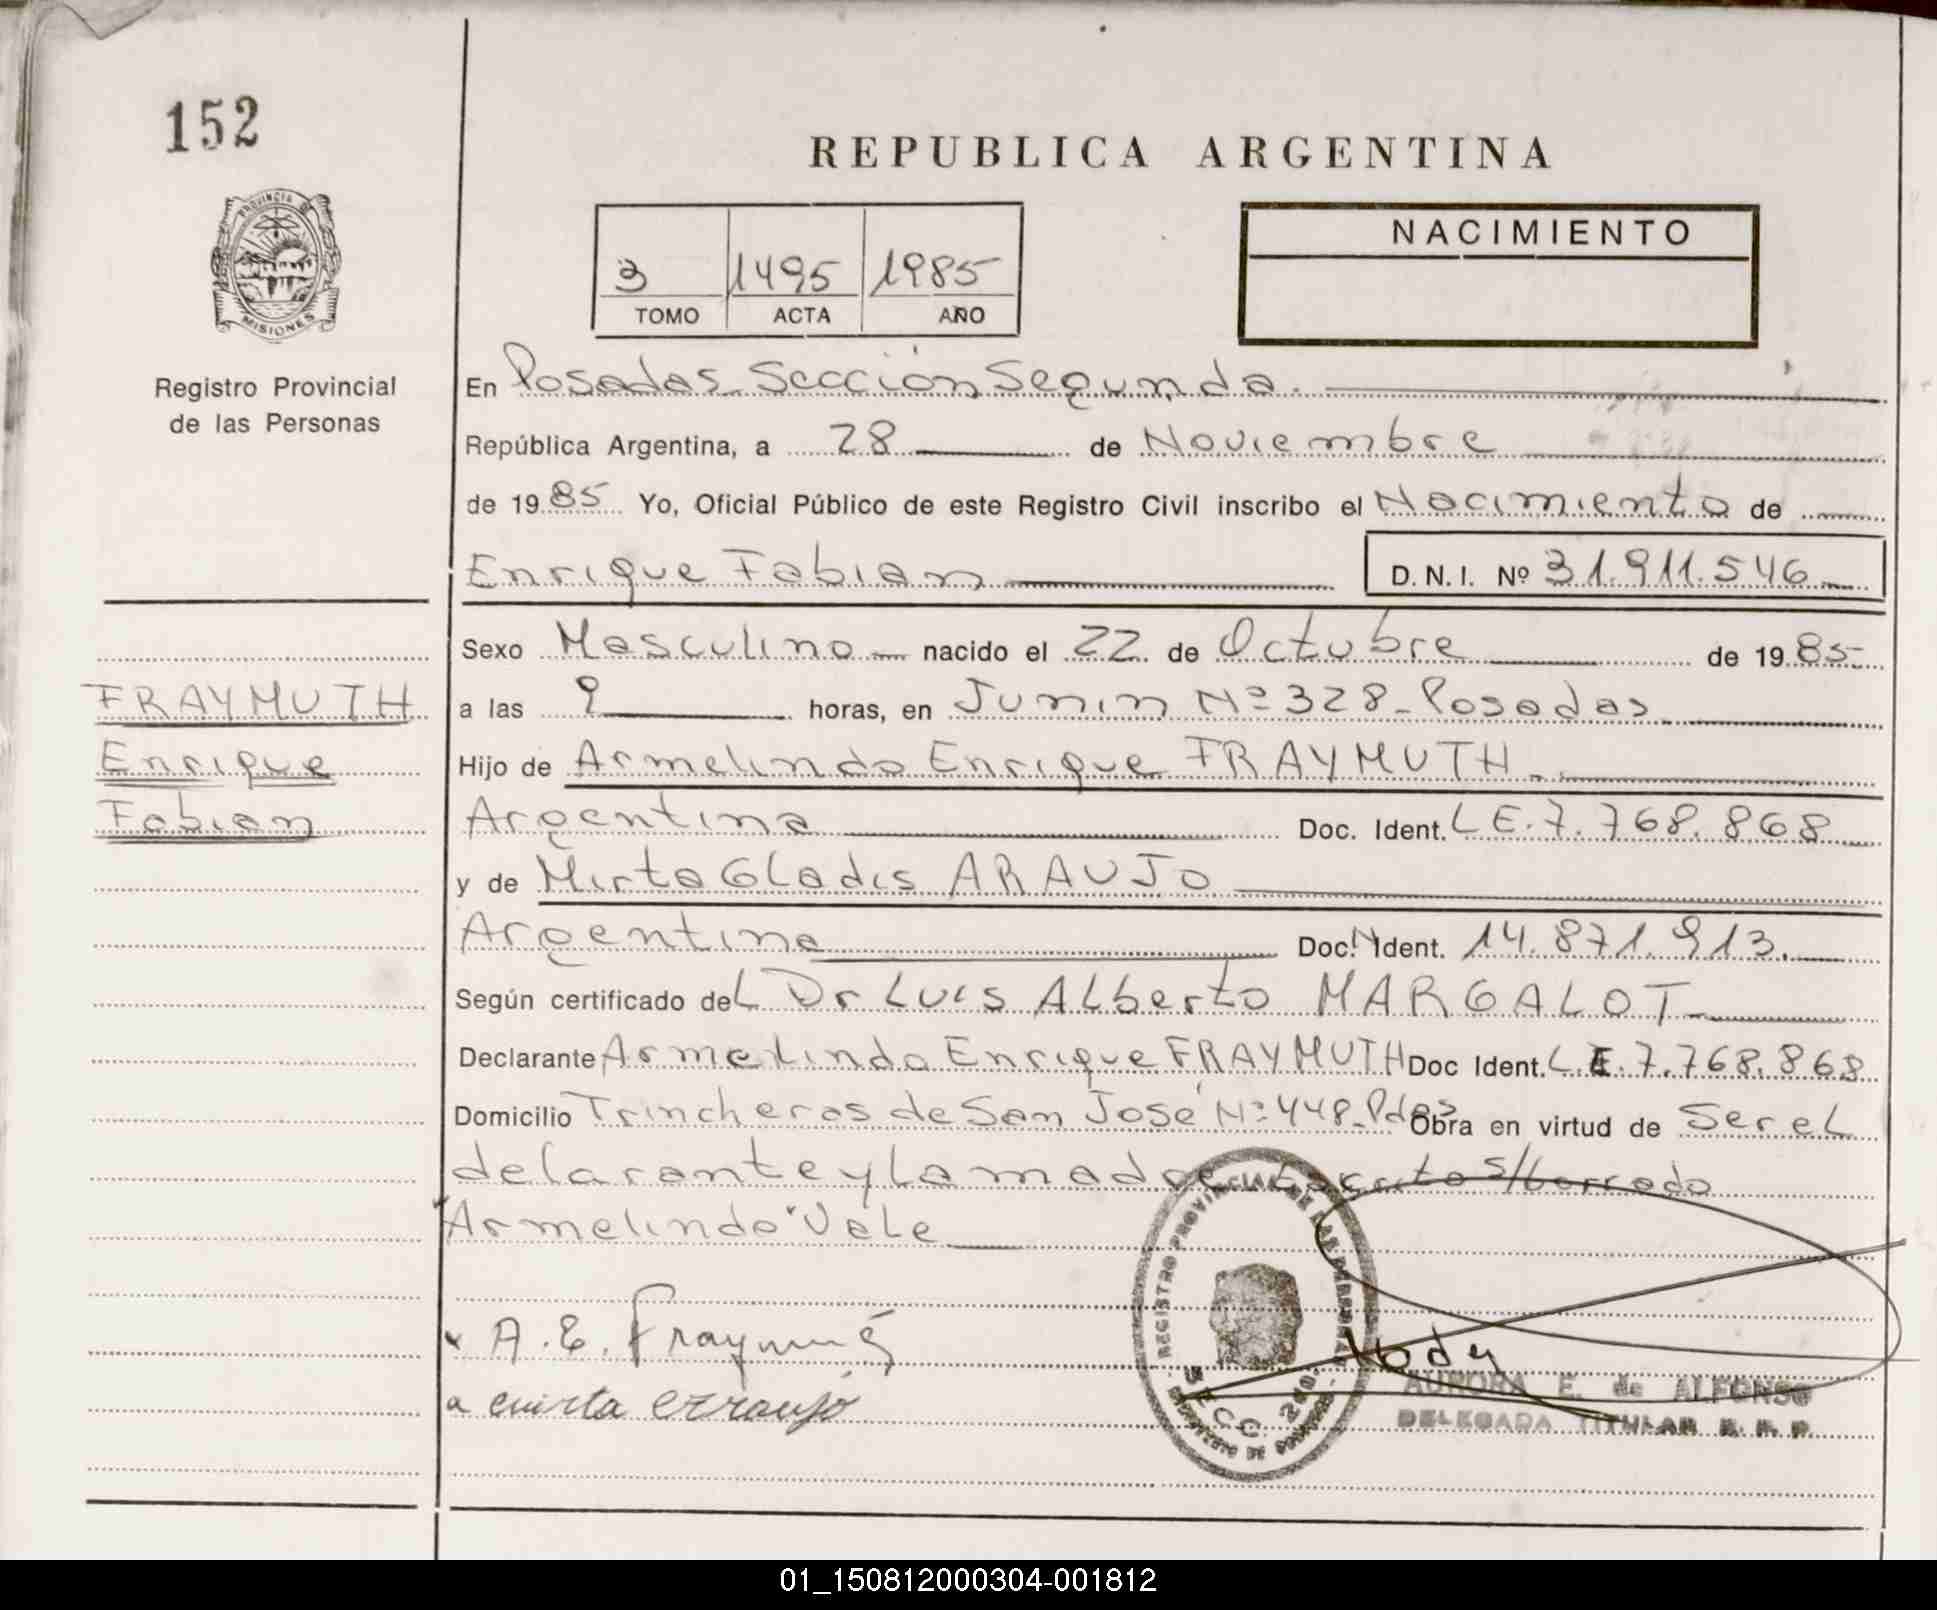 152
REPUBLICA ARGENTINA
PROVINCIA DE
MISIONES
3 1495 1985
TOMO ACTA AÑO
NACIMIENTO
Registro Provincial
de las Personas
En Posadas Sección Segunda.
República Argentina, a 28 de Noviembre
de 1985 Yo, Oficial Público de este Registro Civil inscribo el Nacimiento de
Enrique Fabian D.N.I. Nº 31.911.546
Sexo Masculino nacido el 22 de Octubre de 1985
FRAYMUTH
Enrique
Fabian
a las 9 horas, en Junin Nº 328 - Posadas
Hijo de Armelindo Enrique FRAYMUTH.
Argentina Doc. Ident. LE.7.768.868
y de Mirta Gladis ARAUJO
Argentina Doc. Ident. 14.871.913.
Según certificado del Dr Luis Alberto MARGALOT
Declarante Armelindo Enrique FRAYMUTH Doc Ident. L.E.7.768.868
Domicilio Trincheras de San José Nº 448 - Pdas Obra en virtud de Ser el
delarante y la madre Escrito s/borrado
"Armelindo" Vale
A. E. Fraymu
REGISTRO PROVINCIAL DE LAS PERSONAS
SECC. 2da.
AURORA E. de ALFONSO
DELEGADA TITULAR R. P. P.
01_150812000304-001812